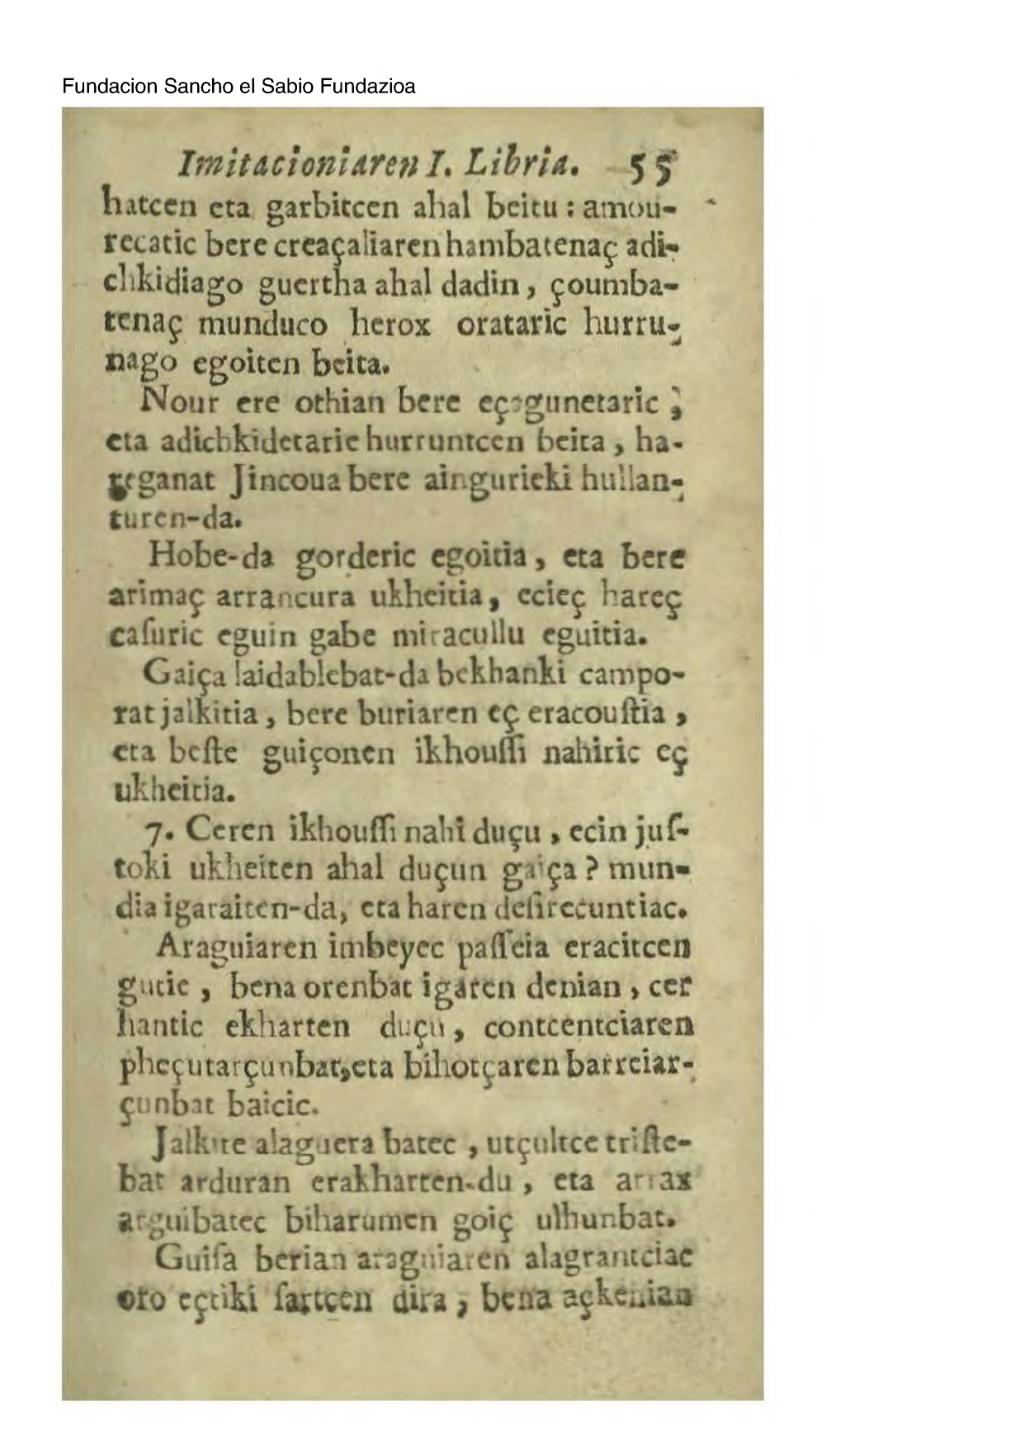 Fundacion Sancho el Sabio Fundazioa
Imitacioniaren I. Libria. 55
hatcen eta garbitcen ahal beitu : amou-
recatic bere creaçaliaren hambatenaç adi-
chkidiago guertha ahal dadin, çoumba-
tenaç munduco herox orataric hurru-
nago egoiten beita.
Nour ere othian bere eçagunetaric ,
eta adichkidetaric hurruntcen beita, ha-
reganat Jincoua bere aingurieki hullan-
turen-da.
Hobe-da gorderic egoitia, eta bere
arimaç arrancura ukheitia, ecieç hareç
caſuric eguin gabe miracullu eguitia.
Gaiça laidablebat-da bekhanki campo-
rat jalkitia, bere buriaren eç eracouſtia ,
eta beſte guiçonen ikhouſſi nahiric eç
ukheitia.
7. Ceren ikhouſſi nahi duçu, ecin juſ-
toki ukheiten ahal duçun gaiça ? mun-
dia igaraiten-da, eta haren deſirecuntiac.
Araguiaren imbeyec paſſeia eracitcen
gutie, bena orenbat igaren denian, cer
hantic ekharten duçu, contcentciaren
pheçutarçunbat, eta bihotçaren barreiar-
çunbat baicic.
Jalkite alaguera batec, utçultce triſte-
bat arduran erakharten-du, eta arrax
arguibatec biharamen goiç ulhunbat.
Guiſa berian araguiaren alagrantciac
oro eçtiki ſartcen dira, bena açkenian